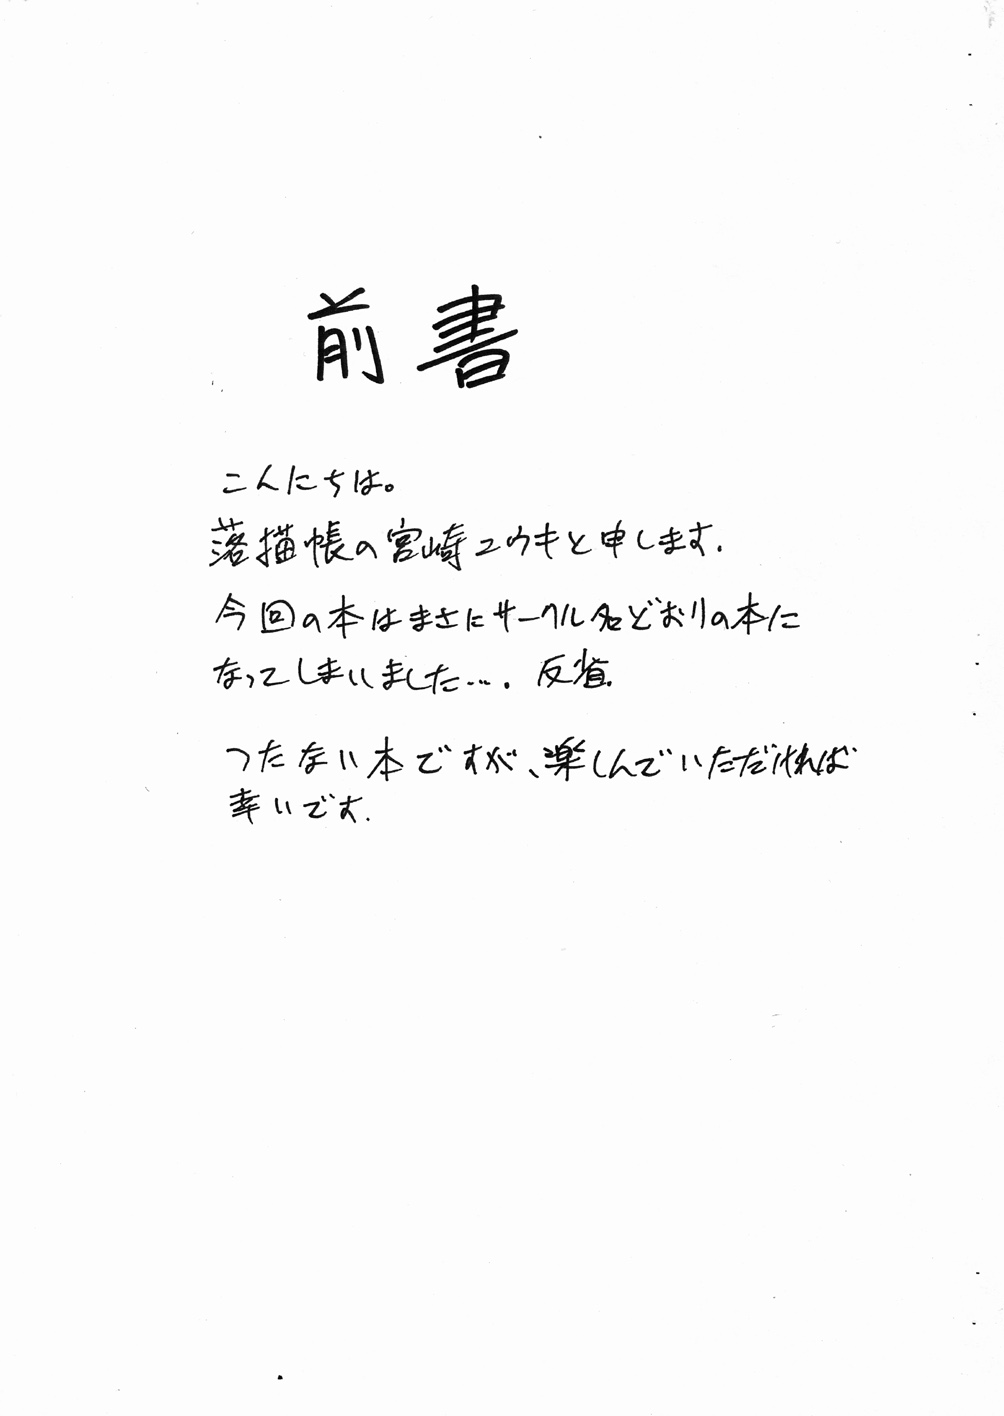 前書
こんにちは。
落描帳の宮崎ユウキと申します.
今回の本はまさにサークル名どおりの本に
なってしまいました…. 反省.
つたない本ですが、楽しんでいただければ
幸いです.